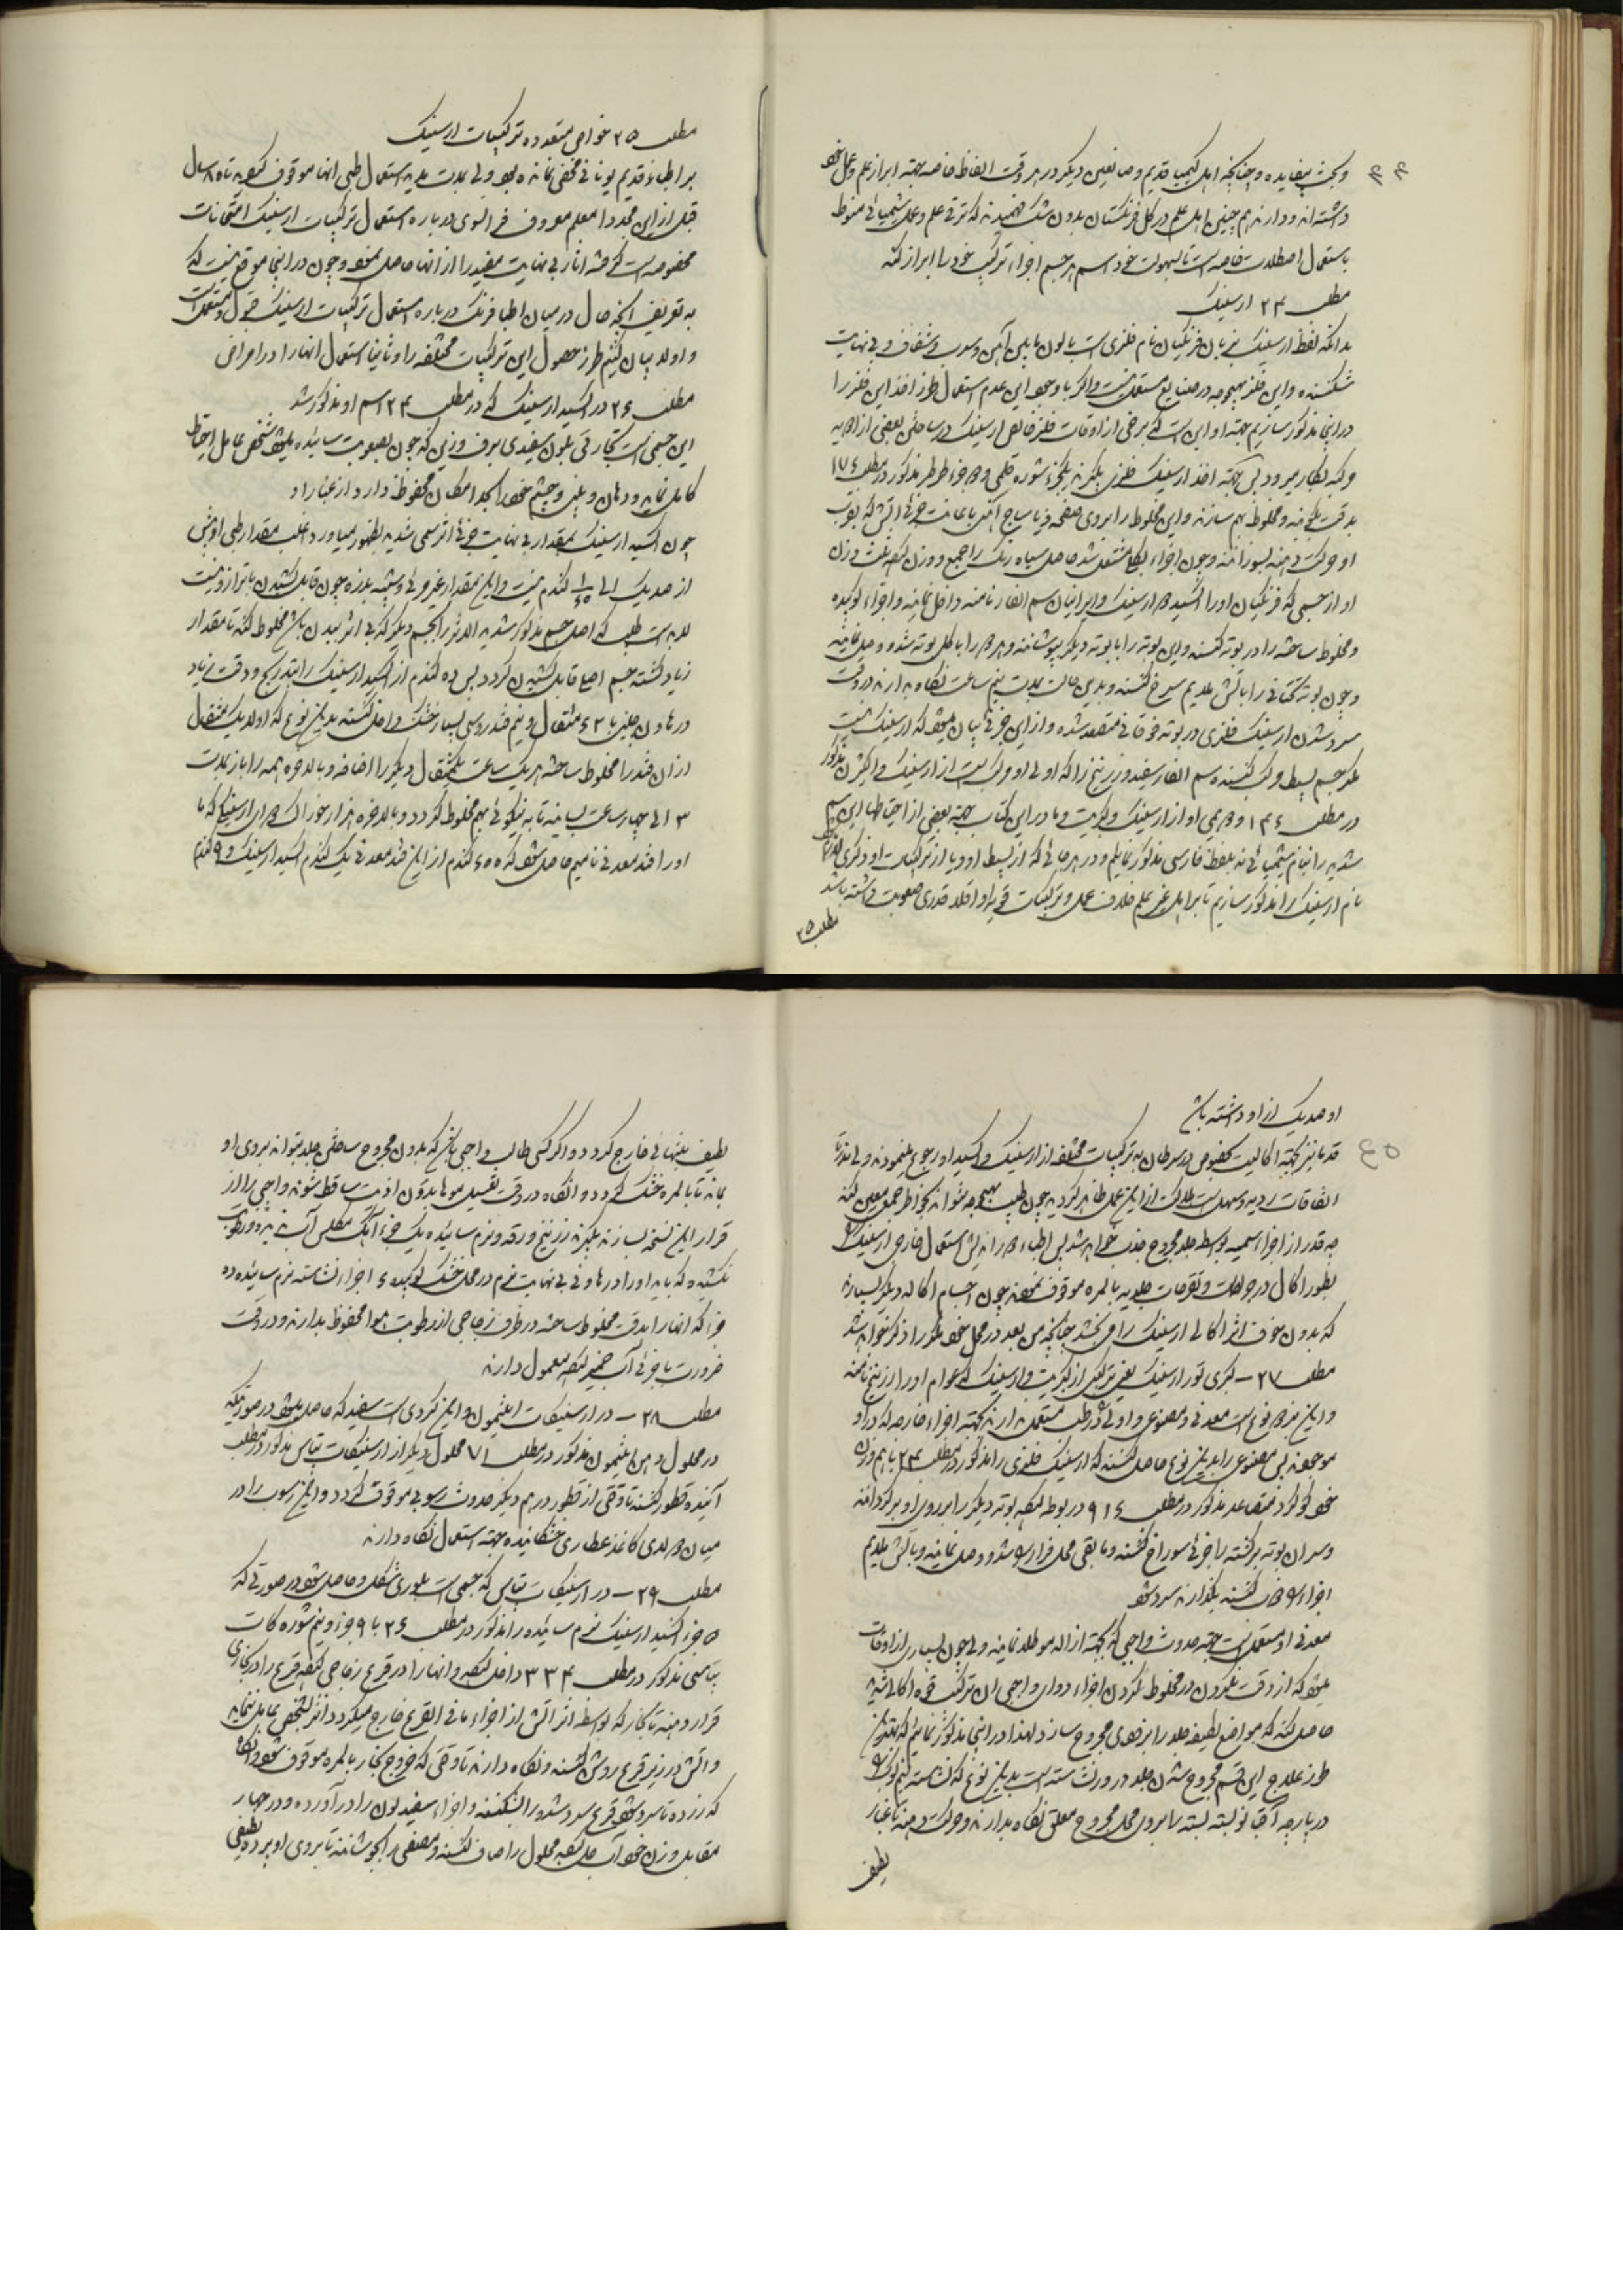 ۴۴
و بحث بیفایده و چنانکه اهل کیمیا قدیم و صانعین دیگر در هر وقت الفاظ خاصه جهته ابراز علم و عمل خود
داشته‌اند و دارند هم چنین اهل علم در کل فرنگستان بدون شک فهمیدند که ترقی علم و عمل شیمیائی منوط
باستعمال اصطلاحات خاصه است تا بسهولت خود اسم هر جسم اجزاء ترکیب خود را ابراز کند
مطلب ۲۴ ارسنیک
بدانکه لفظ ارسنیک بزبان فرنگیان نام فلزی است بالون مابین آهن و سرب و شفاف و بی نهایت
شکننده و این فلز بهیچوجه در صنایع مستعمل نیست و اگر با وجود این عدم استعمال طرز اخذ این فلز را
در اینجا مذکور سازیم جهته او این است که برخی از اوقات فلز خالص ارسنیک در ساختن بعضی از ادویه
مرکبه بکار میرود پس جهته اخذ ارسنیک فلزی بگیرند یکجزء شوره قلمی و دو جزء طرطر مذکور در مطلب ۱۷۶
بدقت بکوبند و مخلوط بهم سازند و این مخلوط را بروی صفحه و یا ساج آهنی با مماست جزئی آتش که بقرب
او حرکت دهند بسوزانند و چون اجزاء بکلی مشتعل شد حاصل سیاه رنگ را جمع و وزن نموده بثلث وزن
او از جسمی که فرنگیان او را اکسید دو ارسنیک و ایرانیان سم الفار نامند داخل نمایند و اجزاء کوبیده
و مخلوط ساخته را در بوته کنند و این بوته را با بوته دیگر بپوشانند و هر دو را با گل بوته مسدود وصل نمایند
و چون بوته تحتانی را باتش ملایم سرخ کنند و بدین حالت بمدت نیم ساعت نگاه بدارند در وقت
سرد شدن ارسنیک فلزی در بوته فوقانی متصعد شده و از این جزئی بیان میشود که ارسنیک نیست
مگر جسم بسیط و مرکب کننده سم الفار سفید و زرنیخ زیرا که اولی او مرکب است از ارسنیک و اکیژن مذکور
در مطلب ۱۴۶ و دویمی او از ارسنیک و کبریت و ما در این کتاب جهته بعضی از احتیاطها این سم
شدید را بنام شیمیائی نه بلفظ فارسی مذکور نمایم و در هر جائی که از بسیط او و یا از ترکیبات او ذکری
نام ارسنیک را مذکور سازیم تا برای اهل غیر علم خلاف عمل و ترکیبات قویه او اقلا قدری صعوبت داشته باشد
مطلب ۲۵
مطلب ۲۵ خواص متعدده ترکیبات ارسنیک
بر اطباء قدیم یونانی مخفی نمانده بود ولی بمدت مدید استعمال طبی انها موقوف گردید تا ۸۰ سال
قبل از این مجددا معلم معروف فوالوی در باره استعمال ترکیبات ارسنیک امتحانات
مخصوصه است کرده اثار بی نهایت مفید را از انها حاصل نمود و چون در اینجا موقع نیست که
به تعریف آنچه حال در میان اطبا فرنگ در باره استعمال ترکیبات ارسنیک قبول و مستعمل است
و اولا بیان کنیم طرز حصول این ترکیبات مختلفه را و ثانیا استعمال انها را در امراض
مطلب ۲۶ در اکسید ارسنیک که در مطلب ۲۴ اسم او مذکور شد
این جسمی است تجارتی بلون سفیدی برف و زین که چون بصعوبت سائیده میشود شخص عامل احتیاط
کامل نماید و دهان و بینی و چشم خود را بحد امکان محفوظ دارد از غبار او
چون اکسید ارسنیک بمقدار بی نهایت جزئی اثر سمی شدید بظهور میاورد و اغلب مقدار طبی او بیش
از صد یک الی ۱/۲۵ گندم نیست و این مقدار غیر مرئی و شبیه بذره چون قابل کشیدن با ترازو نیست
لابد است طبیب که اصل جسم مذکور شدید الاثر را بجسم دیگر که بی اثر بدن باشد مخلوط کند تا مقدار
زیاد گشته جسم اصلی قابل کشیدن گردد پس ده گندم از اکسید ارسنیک را بتدریج و دقت زیاد
در هاون چینی با ۲۶ مثقال و نیم قند روسی بسیار خشک داخل کنند بدین نوع که اولا یک مثقال
از ان قند را مخلوط ساخته هر یک ساعت یکمثقال دیگر را اضافه و بالاخره همه را باز بمدت
۳ الی چهار ساعت بسایند تا به نیکوئی بهم مخلوط گردد و بالاخره هزار خوراک دوای ارسنیکی که ما
او را قند معدنی نامیم حاصل شود که ۵۰۶ گندم از این قند معدنی یک گندم اکسید ارسنیک و ۹ گندم
۴۵
او صد یک از او داشته باشد
قدما نیز بجهته اکالیت بخصوص در سرطان به ترکیبات مختلفه از ارسنیک و اکسید او رجوع مینمودند ولی ندرتا
اتفاقات ردیه و مهلک است هلاکت از این عمل ظاهر گردید چون طبیب بهیچوجه نمیتواند بخاطر جمع معین کند
چه قدر از اجزاء سمیه بواسطه جلد مجروح جذب خواهد شد پس اطباء دورانشان استعمال خارجی ارسنیک را
بطور اکال در جراحات و تقرحات جلدیه بالمره موقوف نمودند چون اجسام اکاله دیگر بسیارند
که بدون خوف اثر اکالی ارسنیک را می بخشند چنانکه من بعد در محل خود مذکورا ذکر خواهد شد
مطلب ۲۷ – کبری تور ارسنیک یعنی ترکیبی از کبریت و ارسنیک که عوام او را زرنیخ نامند
و این نیز دو نوع است معدنی و مصنوعی و اولی در طب مستعمل ندارند بجهته اجزاء خارجه که در او
موجودند پس مصنوعی را بدین نوع حاصل کنند که ارسنیک فلزی را مذکور در مطلب ۲۴ با هم وزن
خود گوگرد متصاعد مذکور در مطلب ۹۱۶ در بوطه نموده بوته دیگر را بر روی او برگردانند
و سر ان بوته برگشته را جزئی سوراخ کنند و مابقی محل فرار را مسدود وصل نمایند و باتش ملایم
اجزاء را ذوب کنند بگذارند سرد شود
معدنی او مستعمل است جهته حدوث واجبی که بجهته ازاله مو طلا نمایند ولی چون بسیاری از اوقات
میشود که از دقت نکردن در مخلوط کردن اجزاء دوار واجبی ان ترکیب قوه اکالیتی شدید
حاصل کند که مواضع لطیف جلد را بزودی مجروح سازد لهذا در اینجا مذکور نمائیم که بهترین
طرز علاج این قسم مجروح شدن جلد در ورد نشاسته است بدین نوع که نشاسته نیم کوب را
در پارچه آقبانو بسته بسته را بروی محل مجروح معلق نگاه بدارند و حرکت دهند تا غبار
لطیف
لطیف بتنهائی خارج گردد و اگر کسی طالب واجبی باشد که بدون مجروح ساختن جلد بتواند بروی او
بماند تا بالمره خشک گردد و انگاه در وقت تغسیل موها بدون اذیت ساقط شوند واجبی را از
قرار این نسخه بسازند بگیرند زرنیخ ورقه و نرم سائیده یک جزء آهک مکلس آب ندیده و رطوبت
نکشیده که باید او را در هاونی بی نهایت نرم در محل خشک کوبیده ۶ اجزاء نشاسته نرم سائیده ده
جزء که انها را بدقت مخلوط ساخته در ظرف زجاجی از رطوبت هوا محفوظ بدارند و در وقت
ضرورت با جزئی آب خمیر نموده معمول دارند
مطلب ۲۸ – در ارسنیکات انتیمون و این گردی است سفید که حاصل میشود در صورتیکه
در محلول دهن انتیمون مذکور در مطلب ۷۱ محلول دیگر از ارسنیکات پتاس مذکور در مطلب
آینده قطور کنند تا وقتی از قطور در هم دیگر حدوث رسوب موقوف گردد و این رسوب را در
میان دو لای کاغذ عطاری خشکانیده جهته استعمال نگاه دارند
مطلب ۲۹ – در ارسنیکات پتاس که جسمی است بلوری شکل و حاصل شود در صورتی که
۵ جزء اکسید ارسنیک نرم سائیده را مذکور در مطلب ۲۶ با ۹ جزء و نیم شوره کات
پتاسی مذکور در مطلب ۳۳۴ داخل نموده و انها را در قرع زجاجی نموده قرع را در
قرار دهند تا بخار که بواسطه اثر آتش از اجزاء مافی القرع خارج میگردد اثر بشخص عامل ننماید
و اتش در زیر قرع روشن کنند و نگاه دارند تا وقتی که خروج بخار بالمره موقوف شود و انگاه
که زرده تا سرد شود قرع سرد شده را شکنند و اجزاء سفید لون را در آورده و در چهار
مقابل وزن خود آب حل نموده محلول را صاف کنند و مصفی را بجوشانند تا بروی او پرده لطیفی